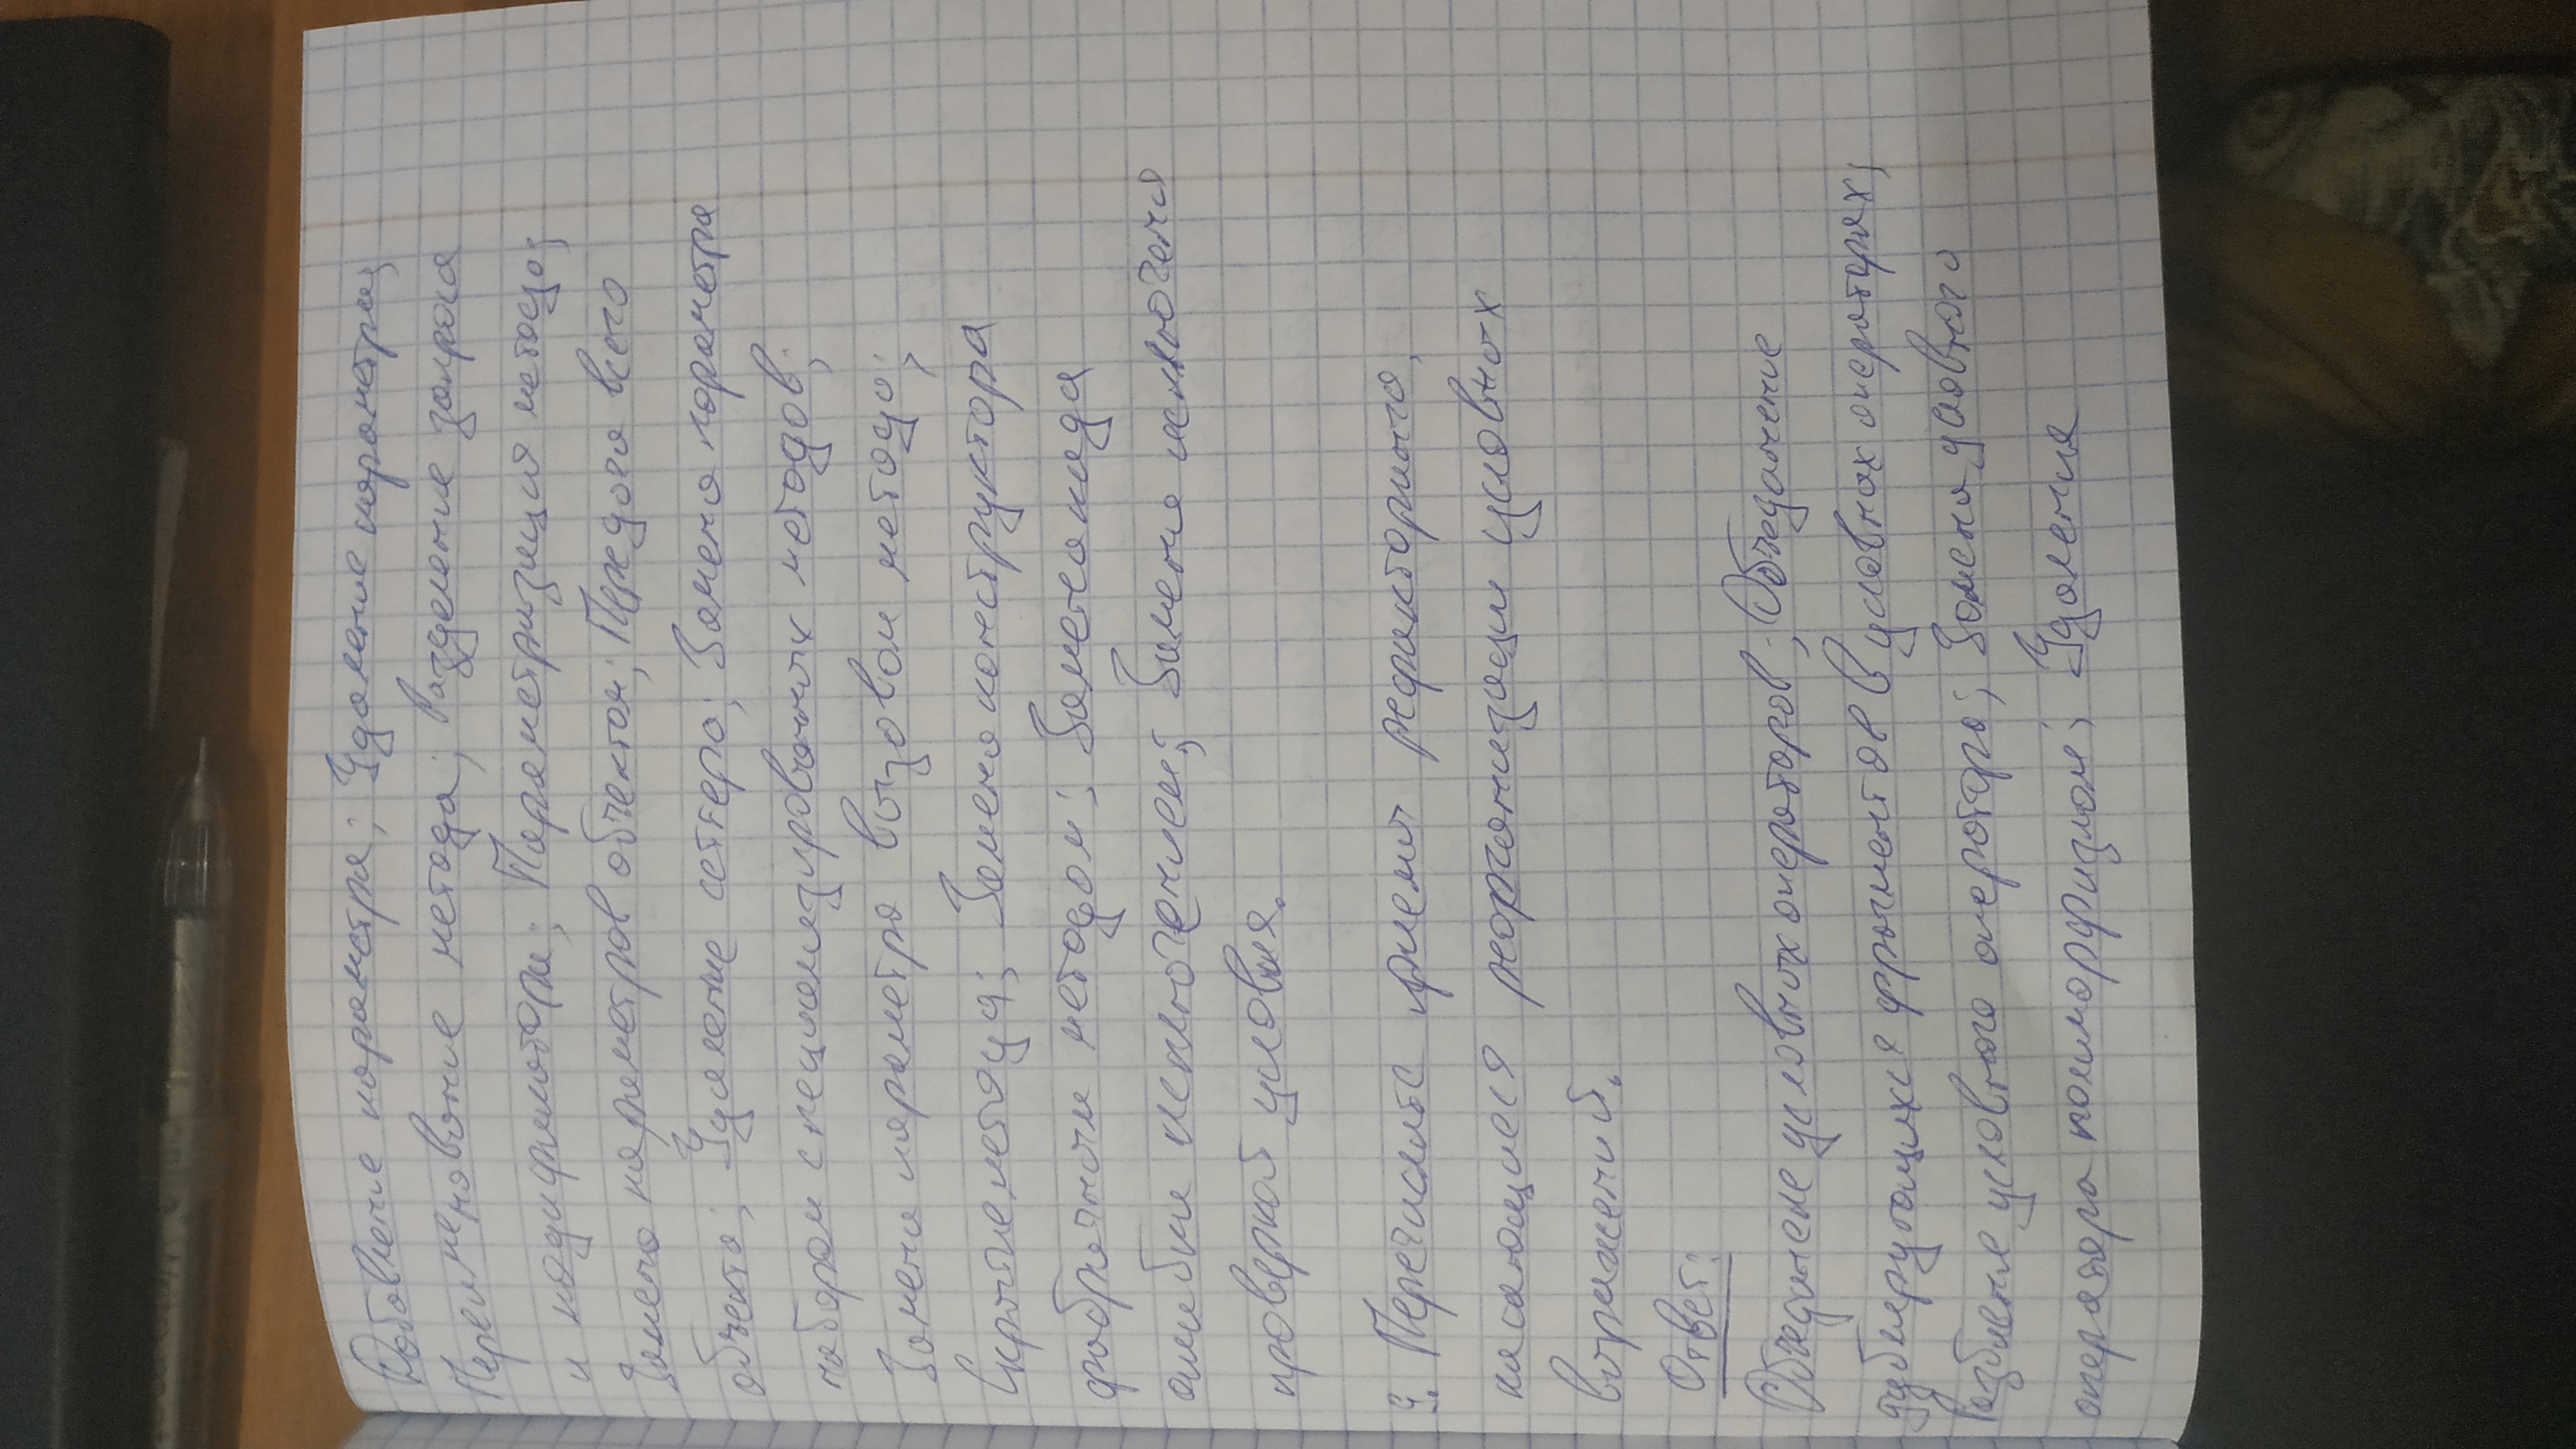 Добавление параметра; Удаление параметра;
Переименование метода; Разделение запроса
и модификатора; Параметризация метода;
Замена параметров объектом; Передача всего
объекта; Удаление сеттера; Замена параметра
набором специализированных методов;
Замена параметра вызовом метода;
Скрытие метода; Замена конструктора
фабричным методом; Замена кода
ошибки исключением; Замена исключения
проверкой условия.
9. Перечислите приемы рефакторинга,
касающиеся реорганизации условных
выражений.
Ответ:
Объединене условных операторов; Объединение
дублирующихся фрагментов в условных операторах;
Разбиение условного оператора; Замена условного
оператора полиморфизмом; Удаления